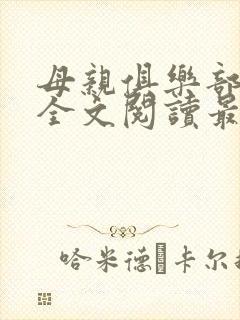 母親俱樂部
全文閱讀最
哈米德·卡尔扎